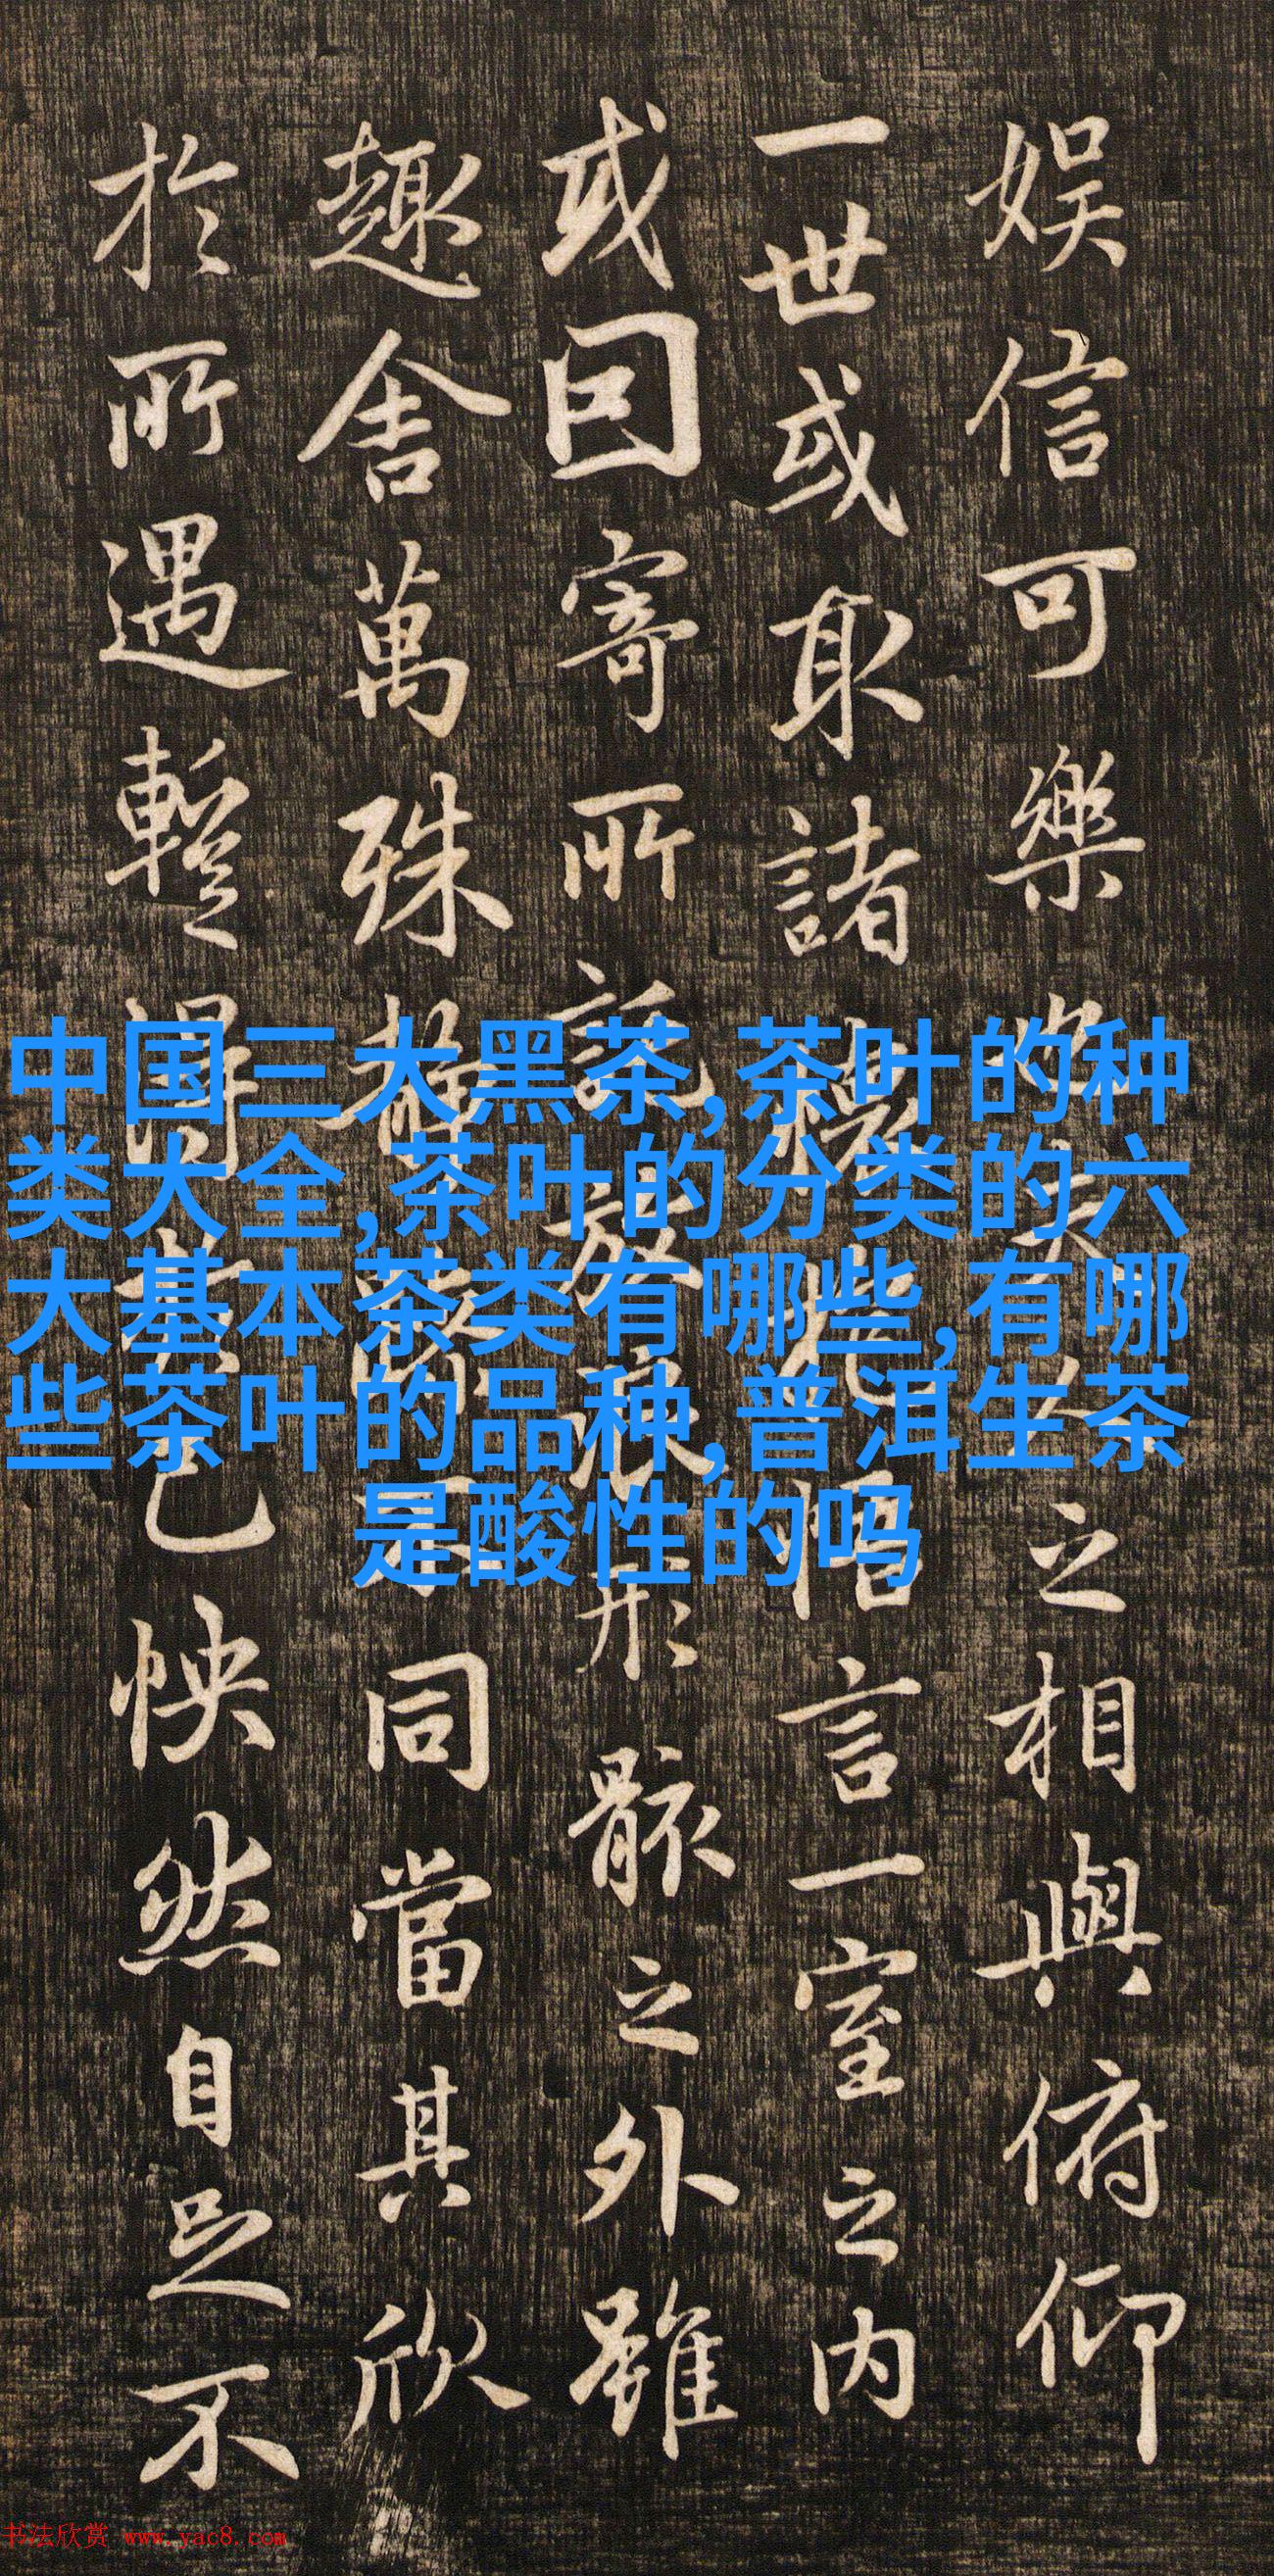 娱信可樂也夫之相與俯仰
一世或取諸懷抱悟言一室之内
或囙寄所託放浪形骸之外雖
趣舍萬殊静躁不同當其欣
於所遇暫得於己怏然自足不
中国三大黑茶,茶叶的种
类大全,茶叶的分类的六
大基本茶类有哪些,有哪
些茶叶的品种,普洱生茶
是酸性的吗
书法欣赏 www.yac8.com